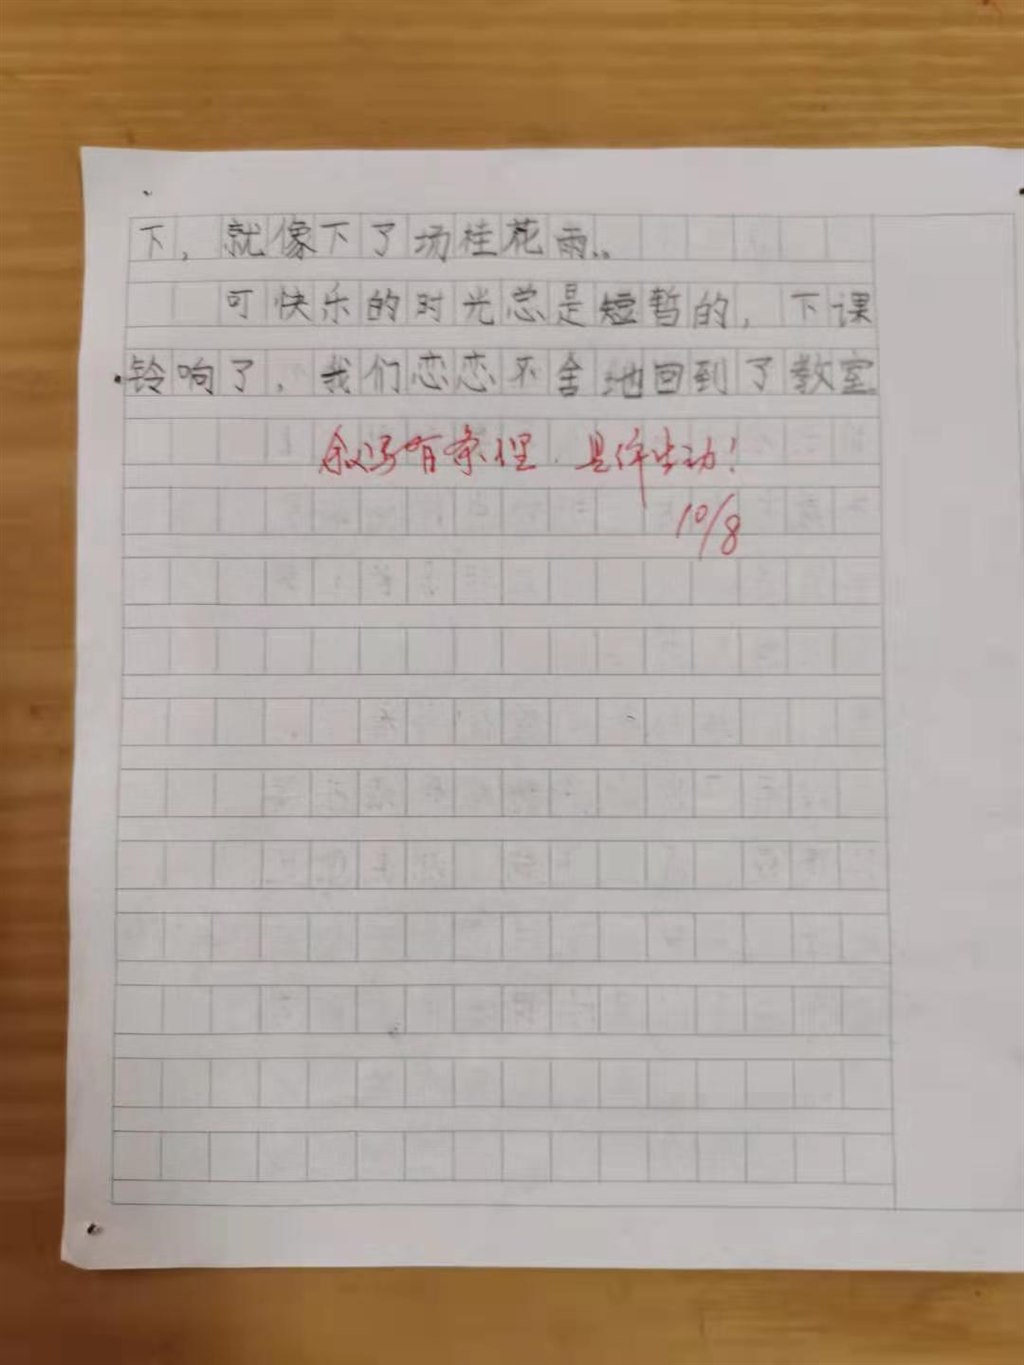 下，就像下了场桂花雨。
可快乐的时光总是短暂的，下课
铃响了，我们恋恋不舍地回到了教室
叙写有条理，具体生动！
10/8